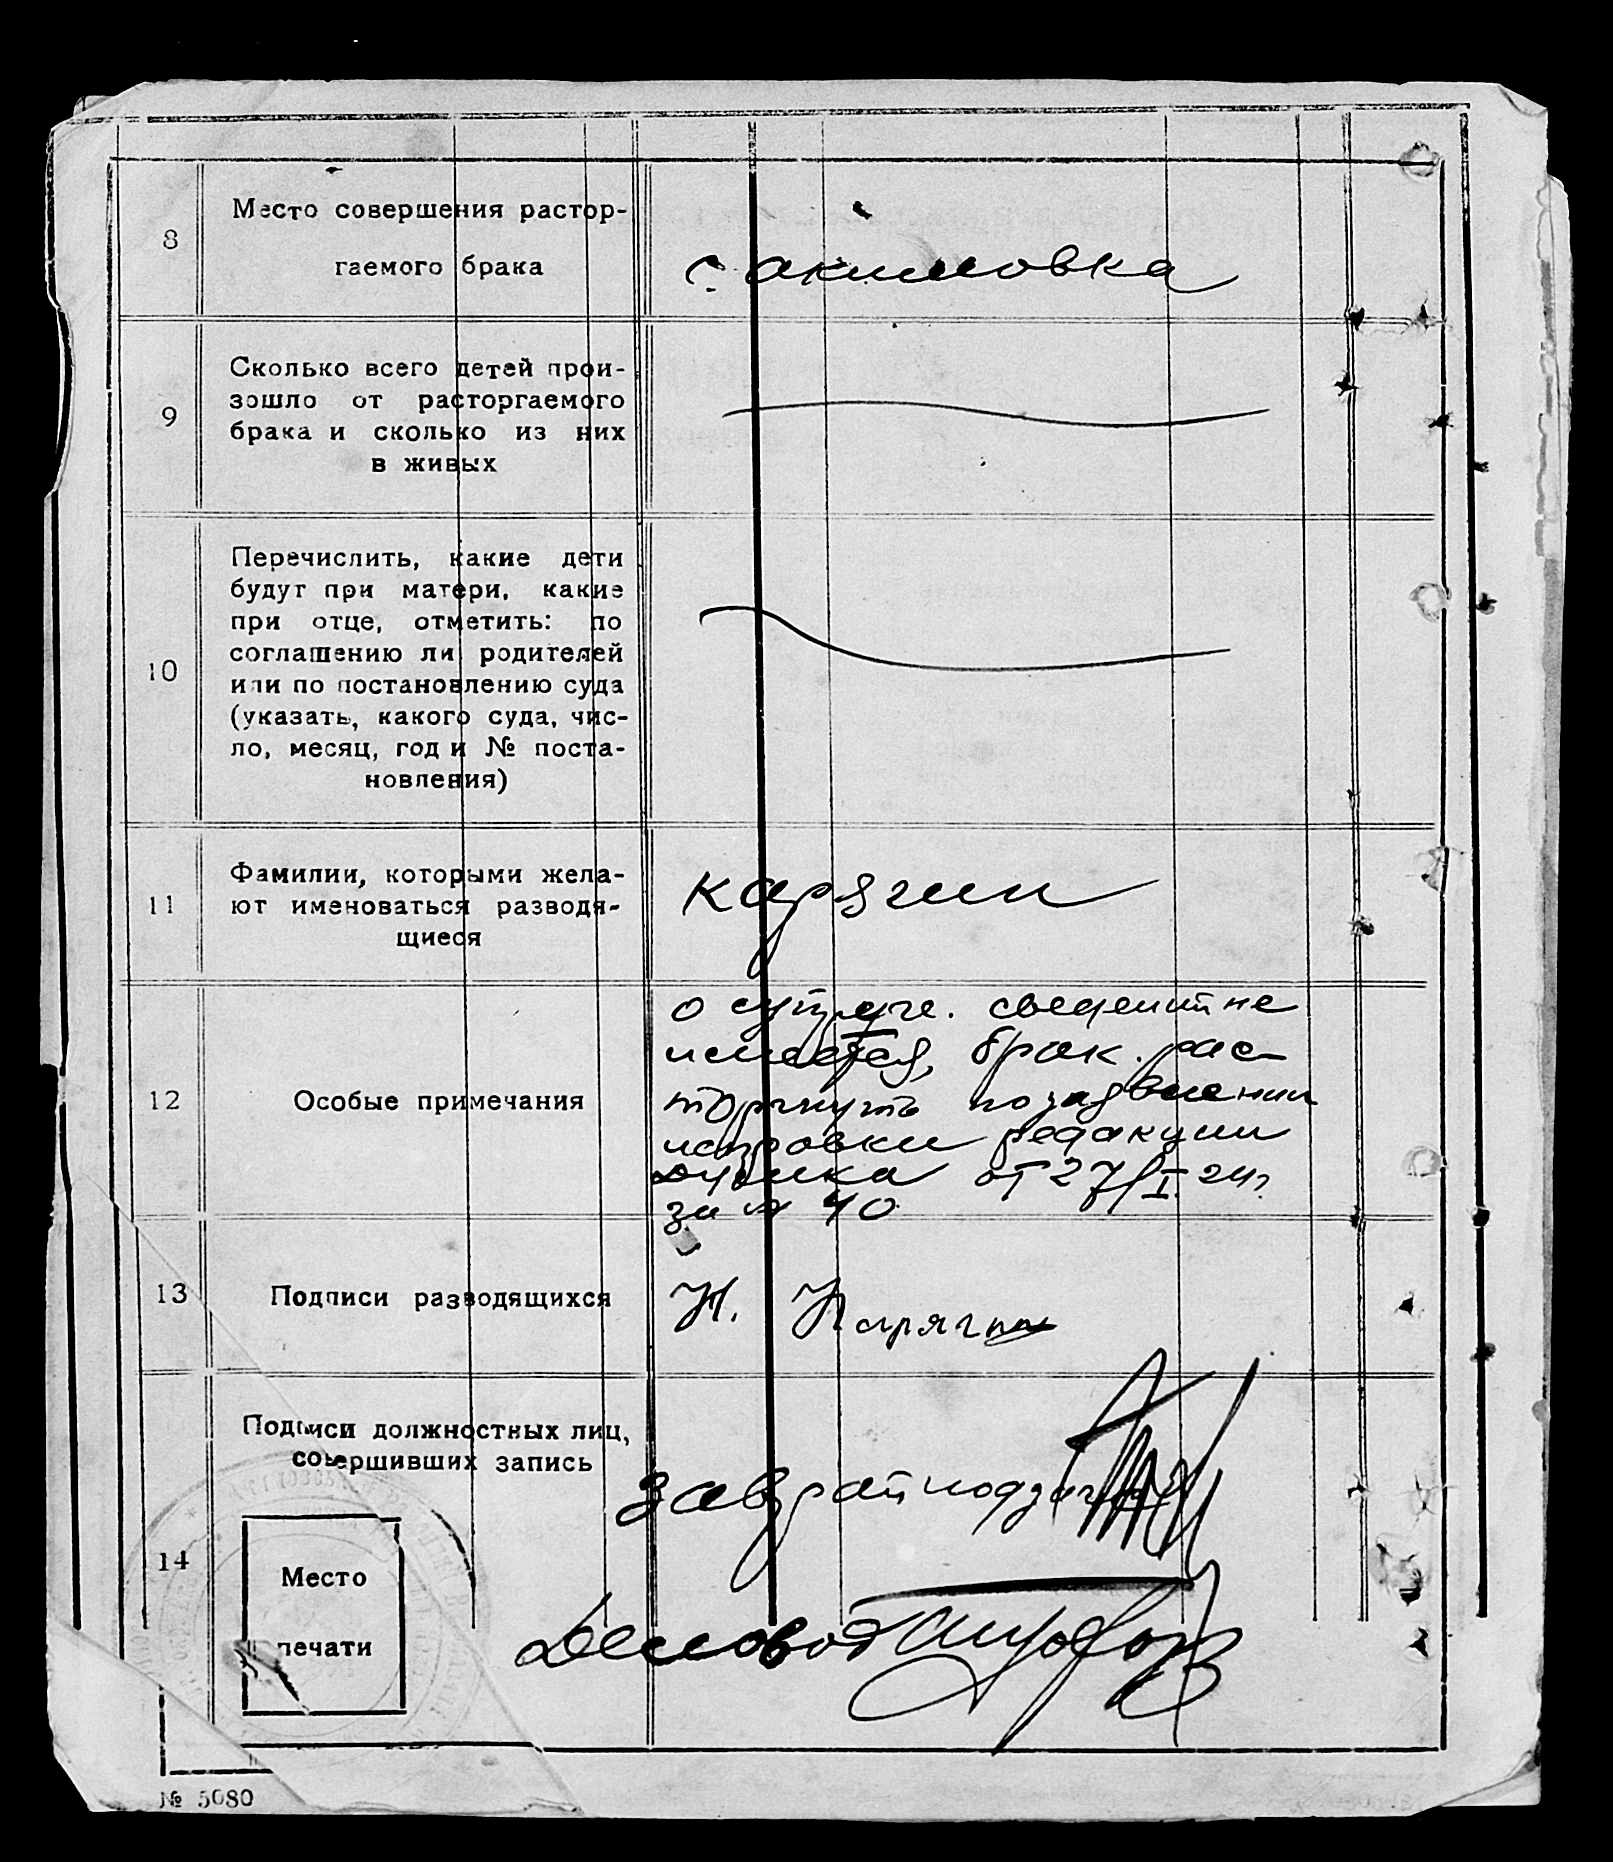 8
Место совершения растор-
гаемого брака
с. акимовка
9
Сколько всего детей прои-
зошло от расторгаемого
брака и сколько из них
в живых
10
Перечислить, какие дети
будут при матери, какие
при отце, отметить: по
соглашению ли родителей
или по постановлению суда
(указать, какого суда, чис-
ло, месяц, год и № поста-
новления)
11
Фамилии, которыми жела-
ют именоваться разводя-
щиеся
карягин
12
Особые примечания
о супруге. сведений не
имеется, брак. рас-
торгнуть по заявлении
редакции
от 27/I 24г.
за № 40
13
Подписи разводящихся
Н. Карягин
14
Подписи должностных лиц,
совершивших запись
Завэрайподъотд
Место
печати
Деловод
№ 5080